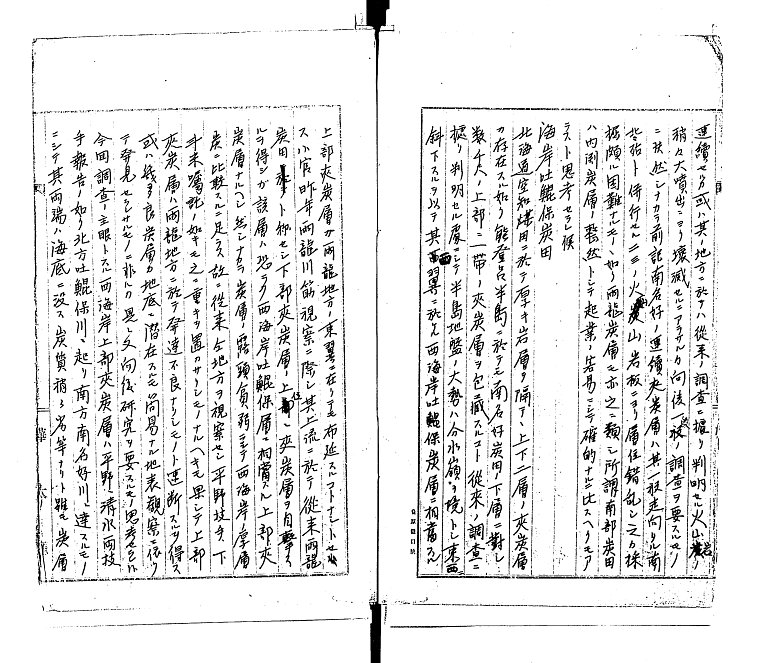 連續セルカ或ハ其ノ地方ニ於テハ從來ノ調査ニ據リ判明セル火山岩ノ
稍々大噴出ニヨリ壞滅セルニアラサルカ向後一般ノ調査ヲ要スルモノ
ニ候然シナカラ前記南名好ノ連續夾炭層ハ其一般走向タル南
北ニ殆ト併行セル二三ノ火山岩板ニヨリ層位錯亂シ之カ採
掘頗ル困難ナルモノノ如ク両龍炭層モ亦之ニ類シ所謂南部炭田
ハ内渕炭層ノ整然トシテ起業ノ容易ニシテ確的ナルニ比スヘクモア
ラスト思考セラレ候
海岸吐鯤保炭田
北海道空知煤田ニ於テ厚キ岩層ヲ隔テ上下二層ノ夾炭層
カ存在スル如ク能登呂半島ニ於テモ南名好炭田ノ下層ニ對シ
数千尺ノ上部ニ一帶ノ夾炭層ヲ包藏スルコト從來ノ調査ニ
據リ判明セル處ニシテ半島地盤ノ大勢ハ分水嶺ヲ境トシ東西ニ
斜下スルヲ以テ其西翼ニ於ケル西海岸吐鯤保炭層ニ相當スル
上部夾炭層カ両龍地方ノ東翼ニ在リテモ布延スルコトナントセ
ス小官昨年両龍川筋視察ニ際シ其上流ニ於テ從来両龍
炭田ト称セシ下部夾炭層ノ上位ニ夾炭層ヲ目撃ス
ルヲ得シガ該層ハ恐ラク西海岸吐鯤保層ニ相當スル上部夾
炭層ナルヘシ然シナカラ炭層ノ露頭貧弱ニシテ西海岸ノ厚層
炭ニ比較スルニ足ラス故ニ從来仝地方ヲ視察セシ平野技手下
斗米囑託ノ如キモ之ニ重キヲ置カサリシモノナルヘキモ果シテ上部
夾炭層ハ両龍地方ニ於テ發達不良ナリシモノト速断スルヲ得ス
或ハ幾多良炭層カ地底ニ潜在スルモ簡易ナル地表観察ニ依リ
テ発見セラレサルモノニ非ルカ是レ又向後研究ヲ要スルモノト思考セラル
今回調査ノ主眼トスル西海岸上部夾炭層ハ平野、清水両技
手報告ノ如ク北方吐鯤保川ニ起リ南方南名好川ニ達スルモノ
ニシテ其両端ハ海底ニ没ス炭質稍々劣等ナリト雖モ炭層